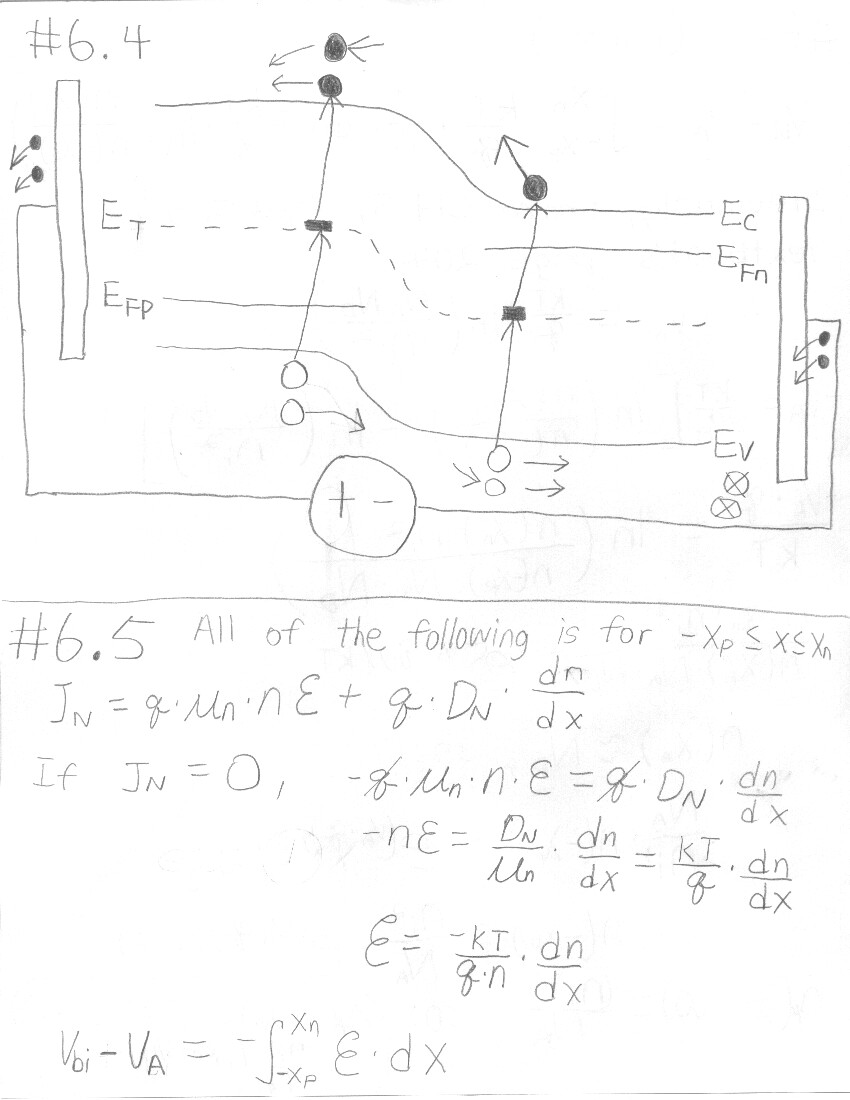 #6.4
E_T
E_C
E_Fn
E_Fp
E_V
+ -
#6.5 All of the following is for -x_p ≤ x ≤ x_n
J_N = q·μ_n·n ℰ + q·D_N·dn/dx
If J_N = 0, -q·μ_n·n·ℰ = q·D_N·dn/dx
-nℰ = D_N/μ_n·dn/dx = kT/q·dn/dx
ℰ = -kT/q·n·dn/dx
V_bi - V_A = -∫_-x_p^x_n ℰ·dx